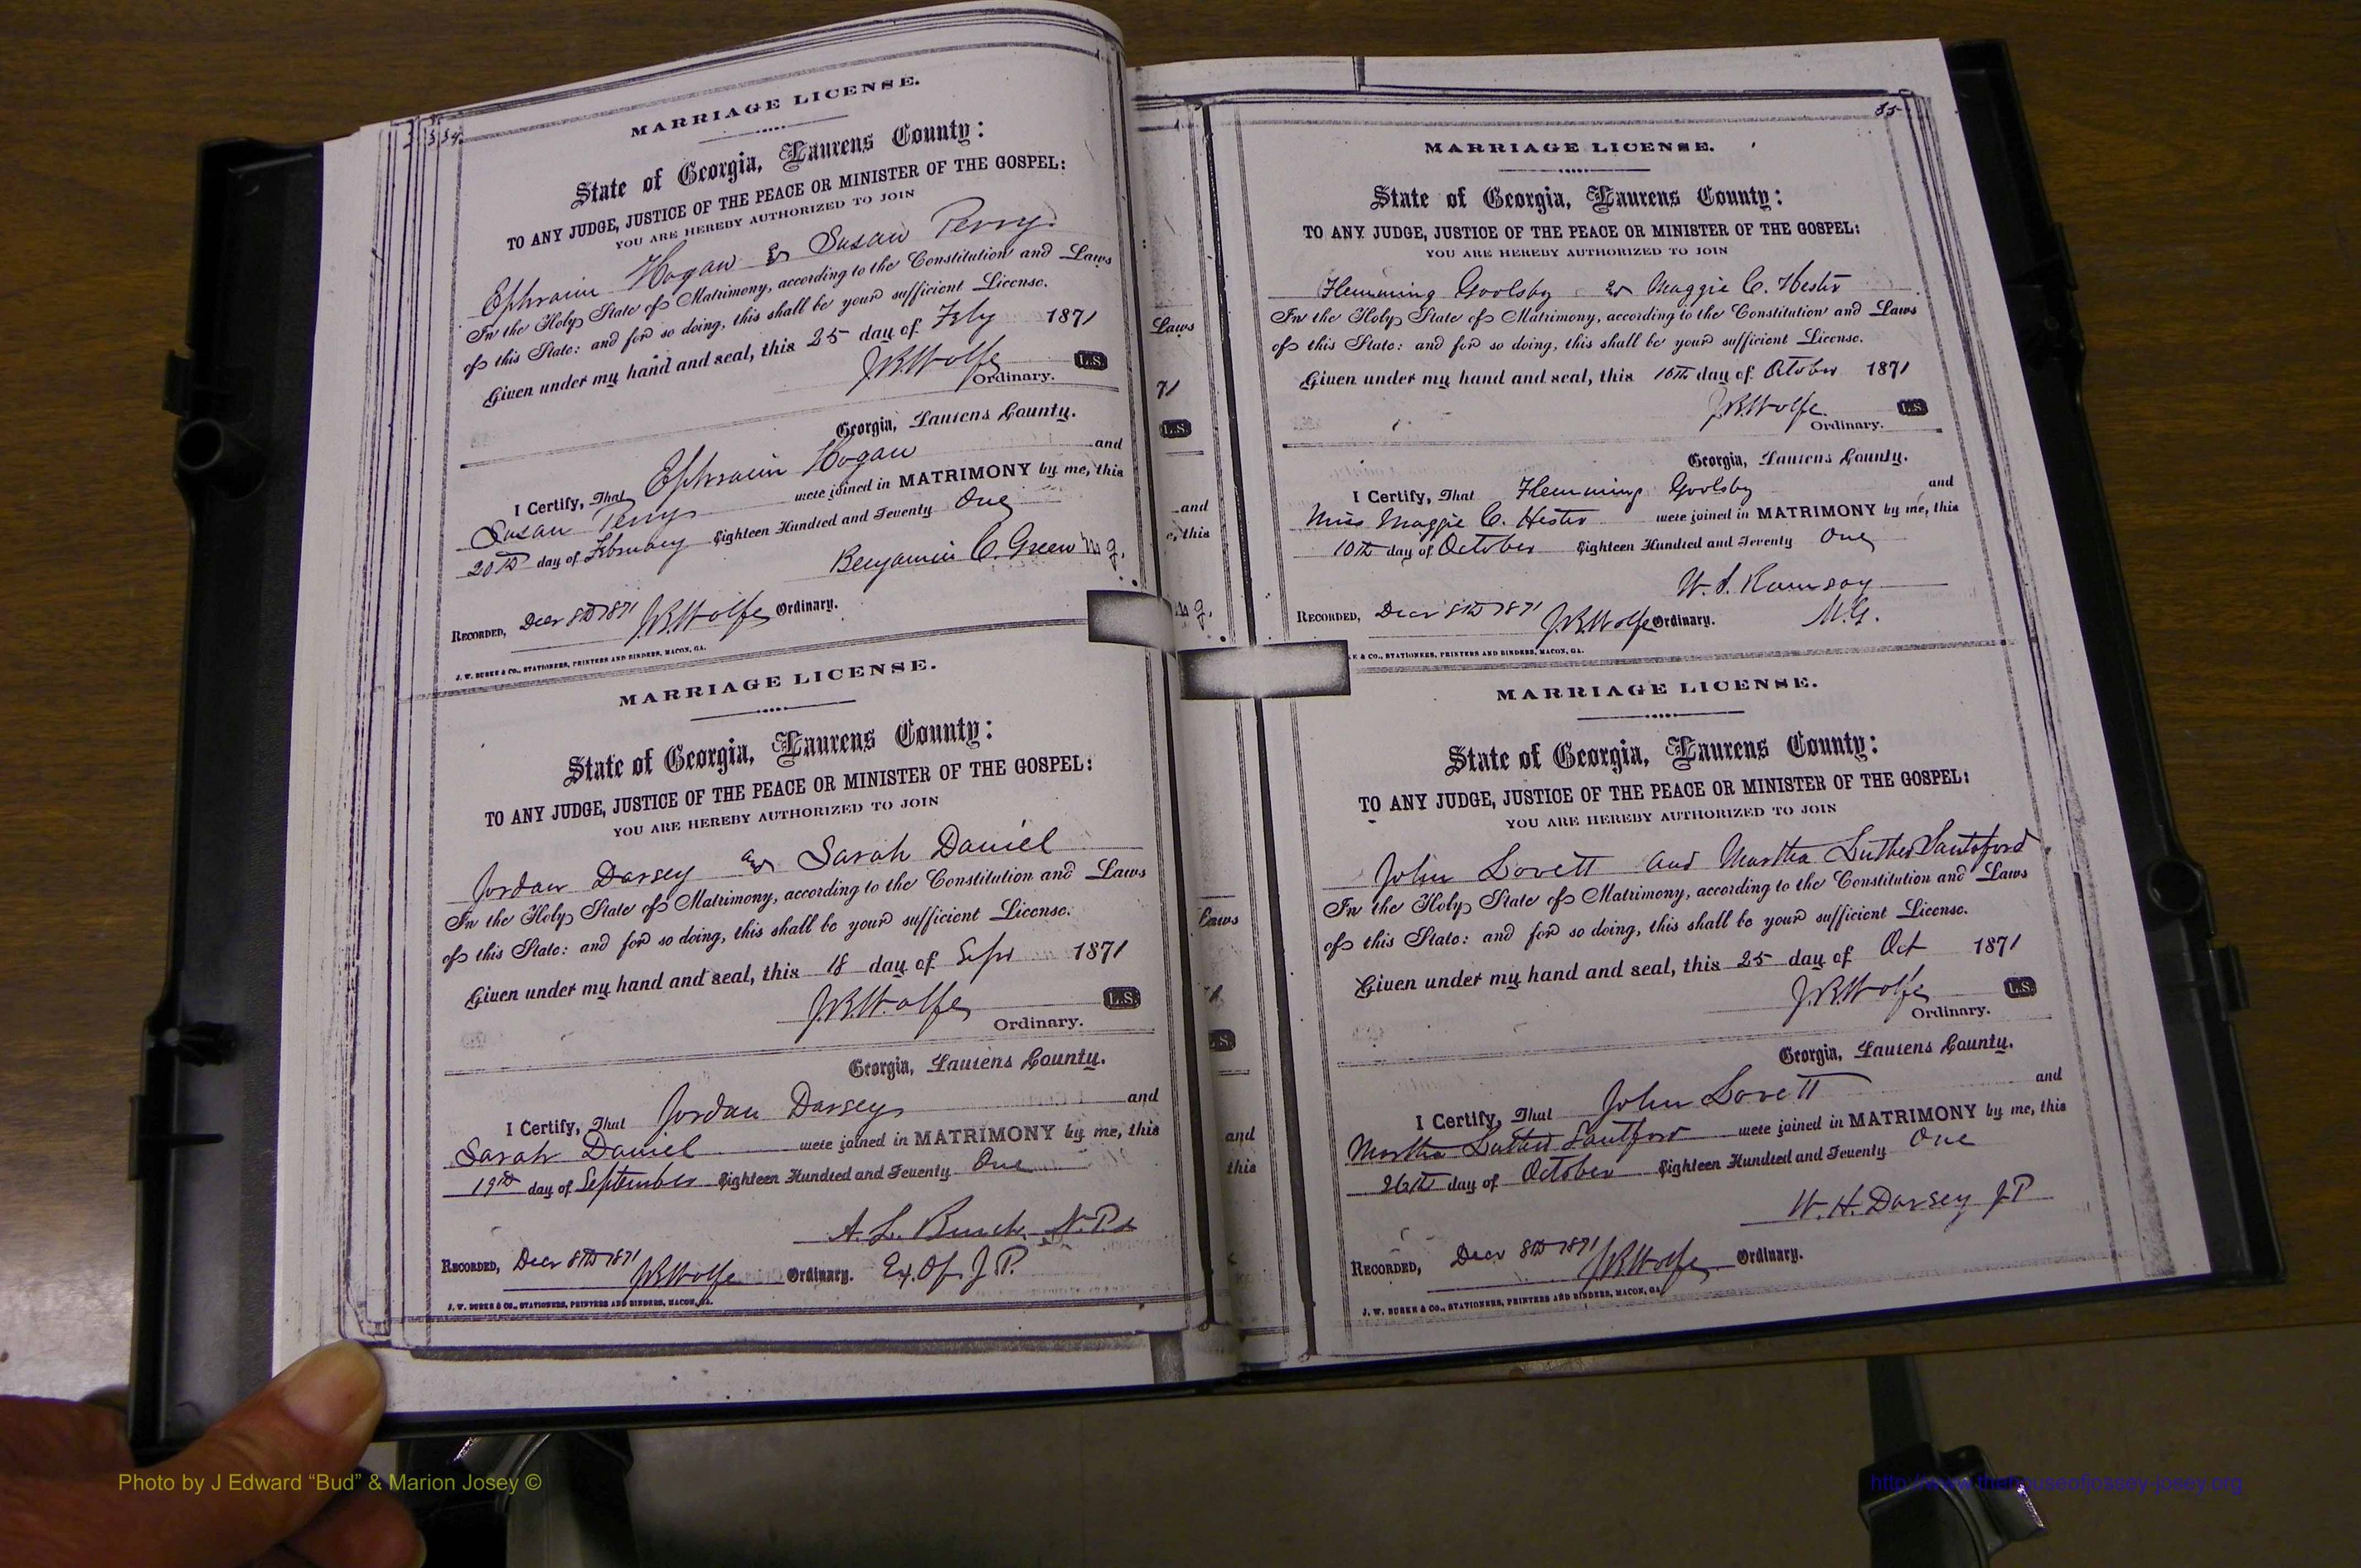 34.
MARRIAGE LICENSE.
State of Georgia, Laurens County:
TO ANY JUDGE, JUSTICE OF THE PEACE OR MINISTER OF THE GOSPEL:
YOU ARE HEREBY AUTHORIZED TO JOIN
Ephraim Hogan & Susan Perry
In the Holy State of Matrimony, according to the Constitution and Laws
of this State: and for so doing, this shall be your sufficient License.
Given under my hand and seal, this 25 day of Feby 1871
J.B. Wolfe L.S.
Ordinary.
Georgia, Laurens County.
I Certify, That Ephraim Hogan and
Susan Perry were joined in MATRIMONY by me, this
20th day of February Eighteen Hundred and Seventy One
Benjamin C. Green M.G.
RECORDED, Decr 8th 1871 J.B. Wolfe Ordinary.
J. W. BURKE & CO., STATIONERS, PRINTERS AND BINDERS, MACON, GA.
MARRIAGE LICENSE.
State of Georgia, Laurens County:
TO ANY JUDGE, JUSTICE OF THE PEACE OR MINISTER OF THE GOSPEL:
YOU ARE HEREBY AUTHORIZED TO JOIN
Jordan Darsey and Sarah Daniel
In the Holy State of Matrimony, according to the Constitution and Laws
of this State: and for so doing, this shall be your sufficient License.
Given under my hand and seal, this 18 day of Sept 1871
J.B. Wolfe L.S.
Ordinary.
Georgia, Laurens County.
I Certify, That Jordan Darsey and
Sarah Daniel were joined in MATRIMONY by me, this
19th day of September Eighteen Hundred and Seventy One
A. L. Burch N.P. &
RECORDED, Decr 8th 1871 J.B. Wolfe Ordinary. Ex. Of. J P.
J. W. BURKE & CO., STATIONERS, PRINTERS AND BINDERS, MACON, GA.
Laws
71
L.S.
and
e, this
M g.
Laws
L.S.
and
this
35
MARRIAGE LICENSE.
State of Georgia, Laurens County:
TO ANY JUDGE, JUSTICE OF THE PEACE OR MINISTER OF THE GOSPEL:
YOU ARE HEREBY AUTHORIZED TO JOIN
Flemming Goolsby & Maggie C. Hester
In the Holy State of Matrimony, according to the Constitution and Laws
of this State: and for so doing, this shall be your sufficient License.
Given under my hand and seal, this 10th day of October 1871
J.B. Wolfe L.S.
Ordinary.
Georgia, Laurens County.
I Certify, That Flemming Goolsby and
Miss Maggie C. Hester were joined in MATRIMONY by me, this
10th day of October Eighteen Hundred and Seventy One
W. S. Ramsay
RECORDED, Decr 8th 1871 J.B. Wolfe Ordinary. M.G.
E & CO., STATIONERS, PRINTERS AND BINDERS, MACON, GA.
MARRIAGE LICENSE.
State of Georgia, Laurens County:
TO ANY JUDGE, JUSTICE OF THE PEACE OR MINISTER OF THE GOSPEL:
YOU ARE HEREBY AUTHORIZED TO JOIN
John Lovett and Martha Luther
In the Holy State of Matrimony, according to the Constitution and Laws
of this State: and for so doing, this shall be your sufficient License.
Given under my hand and seal, this 25 day of Oct 1871
J.B. Wolfe L.S.
Ordinary.
Georgia, Laurens County.
I Certify, That John Lovett and
Martha were joined in MATRIMONY by me, this
26th day of October Eighteen Hundred and Seventy One
W. H. Darsey J P
RECORDED, Decr 8th 1871 J.B. Wolfe Ordinary.
J. W. BURKE & CO., STATIONERS, PRINTERS AND BINDERS, MACON, GA.
Photo by J Edward “Bud” & Marion Josey ©
http://www.thehouseofjossey-josey.org